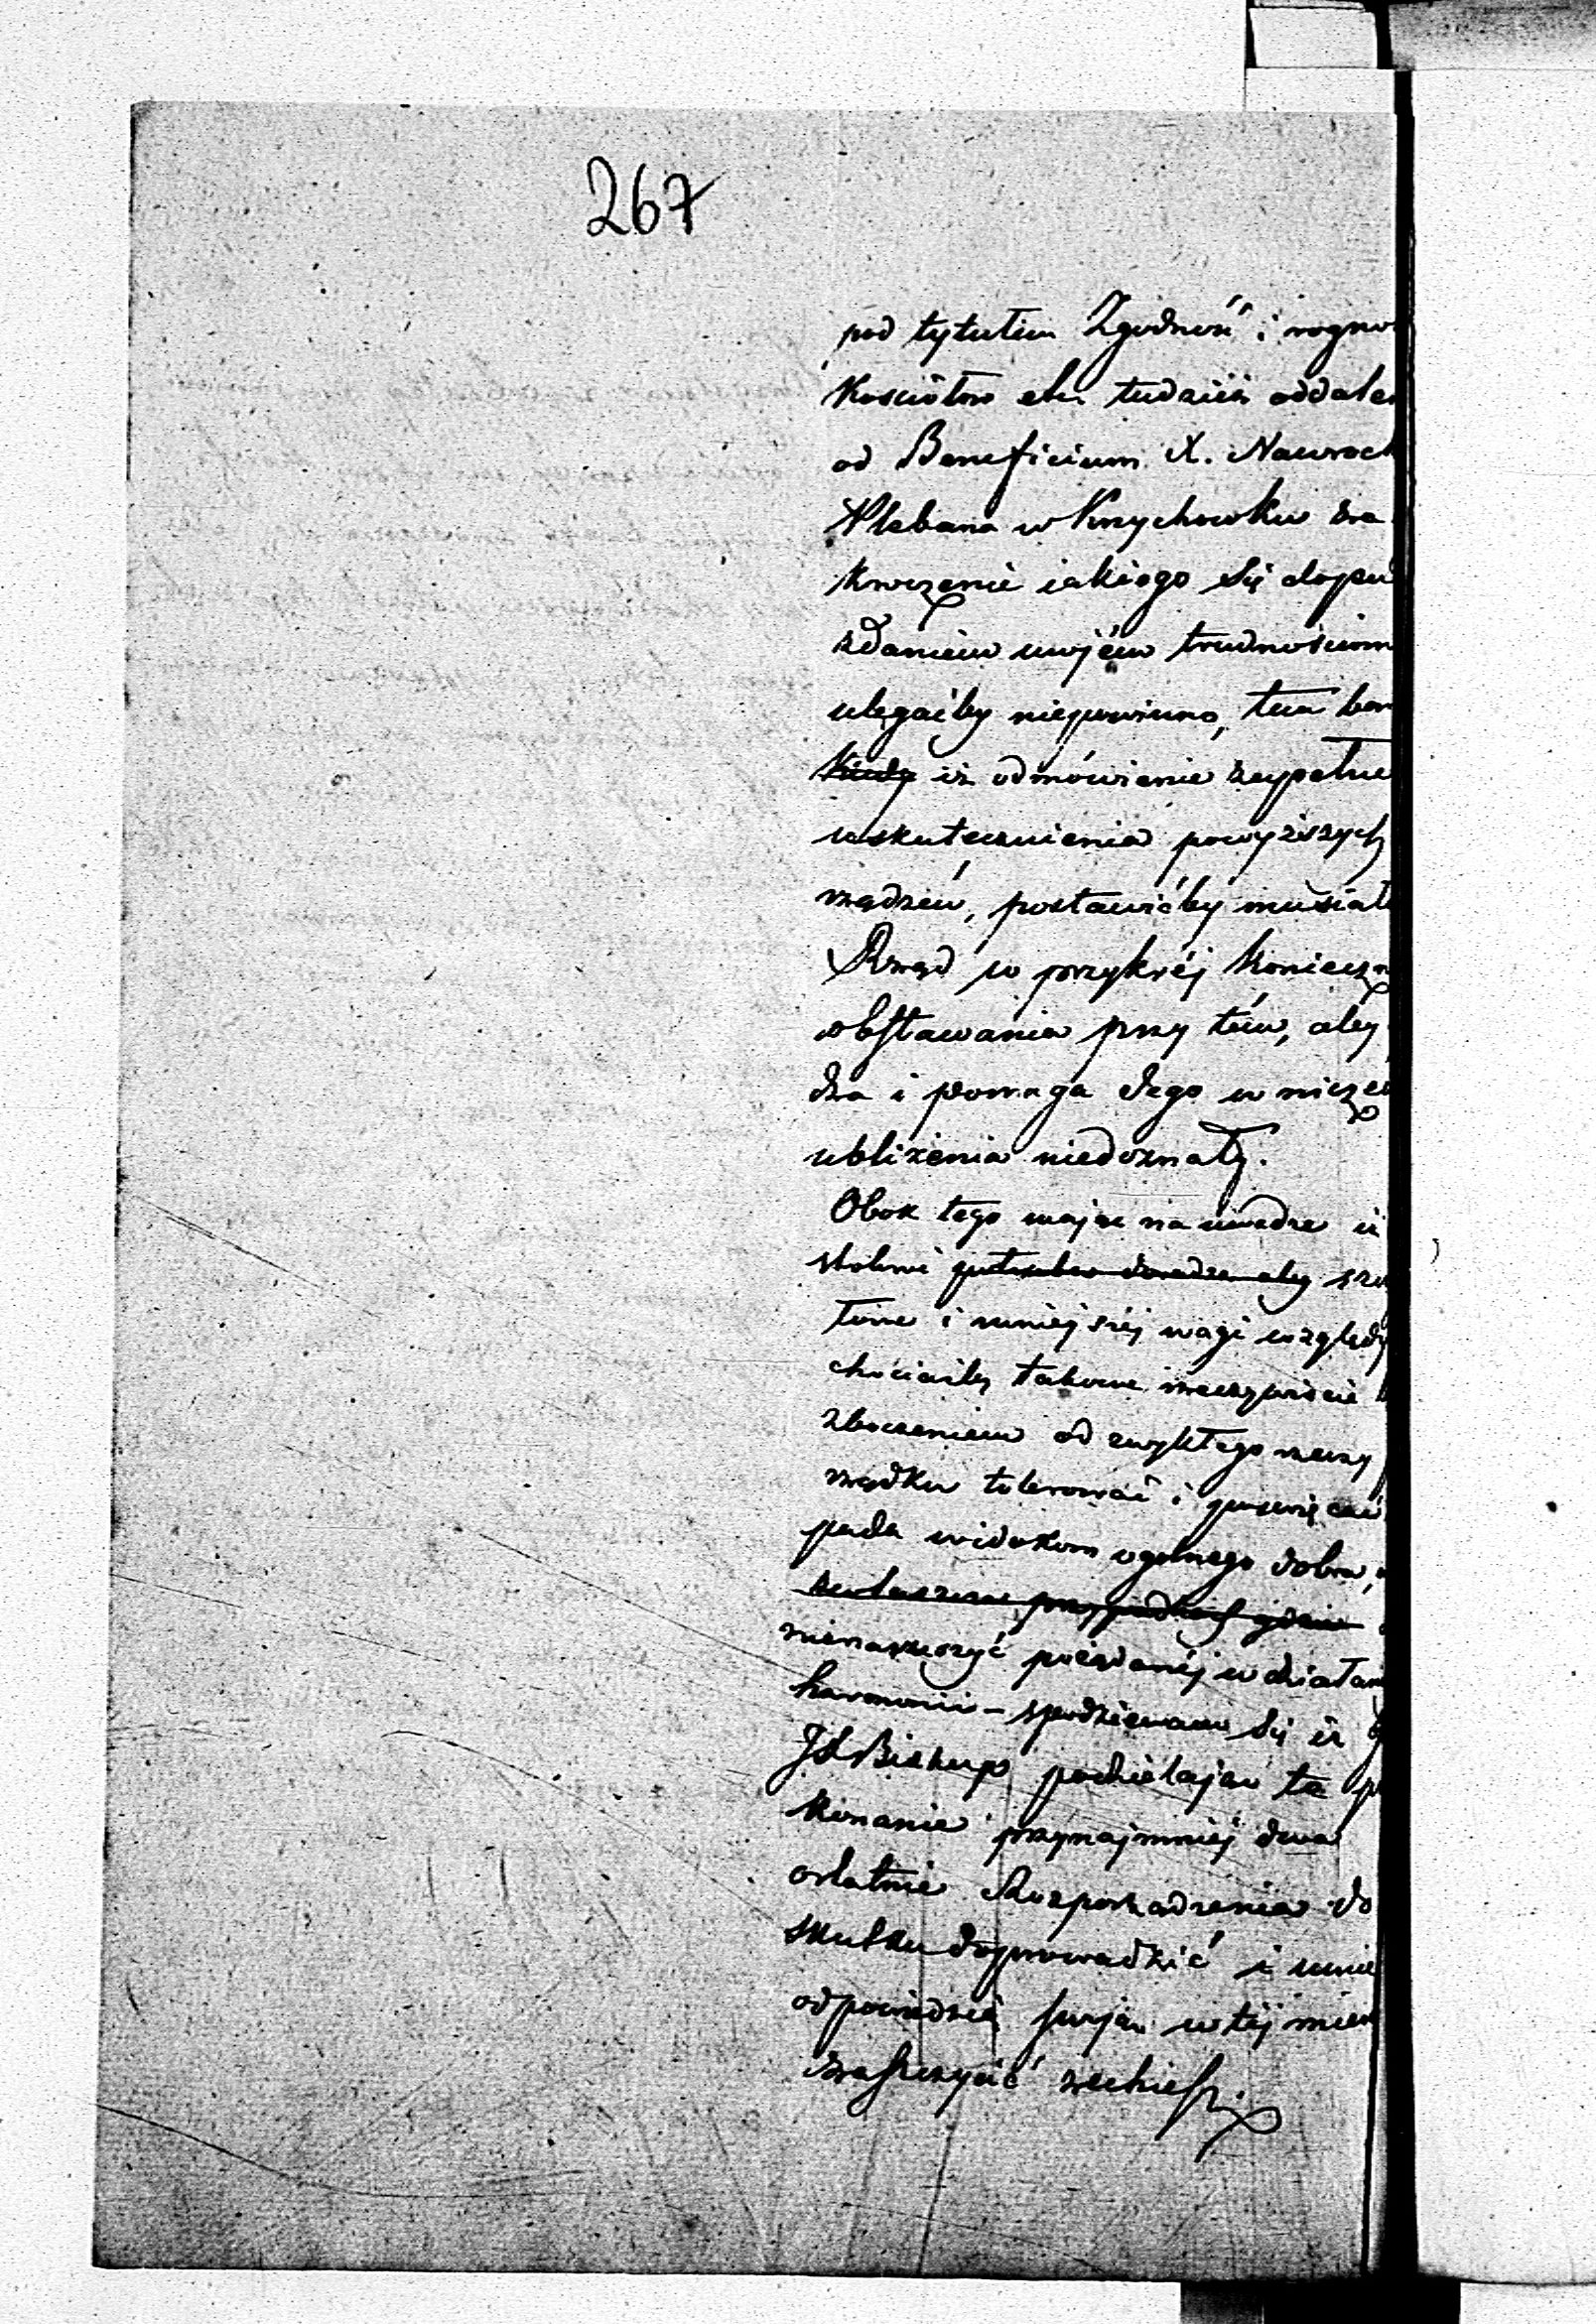 267
pod tytułem Zgodność i rozno
Kosciołow etc. tudzież oddale
od Beneficium X. Nawrock
Plebana w Krzychowku za
kroczenie iakiego się dopu
zdaniem mojém trudnościom
ulegaćby niepowinno, tem bar
iż odmówienie zupełne
uskutecznienia powyższych
rządzeń, postawićby musiał
Rząd w przykréj konieczn
obstawania przy tém, aby
dza i powaga Jego w niczé
ubliżenia niedoznały.
Obok tego mając na uwadze iż
i mniejszéj wagi względy
chociażby takowe rzeczywiście
zboczeniem od zwykłego rzeczy
rządku tolerować i poswięcać
pada widokom ogolnego dobra,
pożądanéj w działani
harmonii – spodziewam się iż
JX Biskup podzielając to p
konanie przynajmniéj dwa
ostatnie Rozporządzenia do
skutku doprowadzić i mnie
odpowiedzią swoją w téj mier
zaszczycić zechcesz.